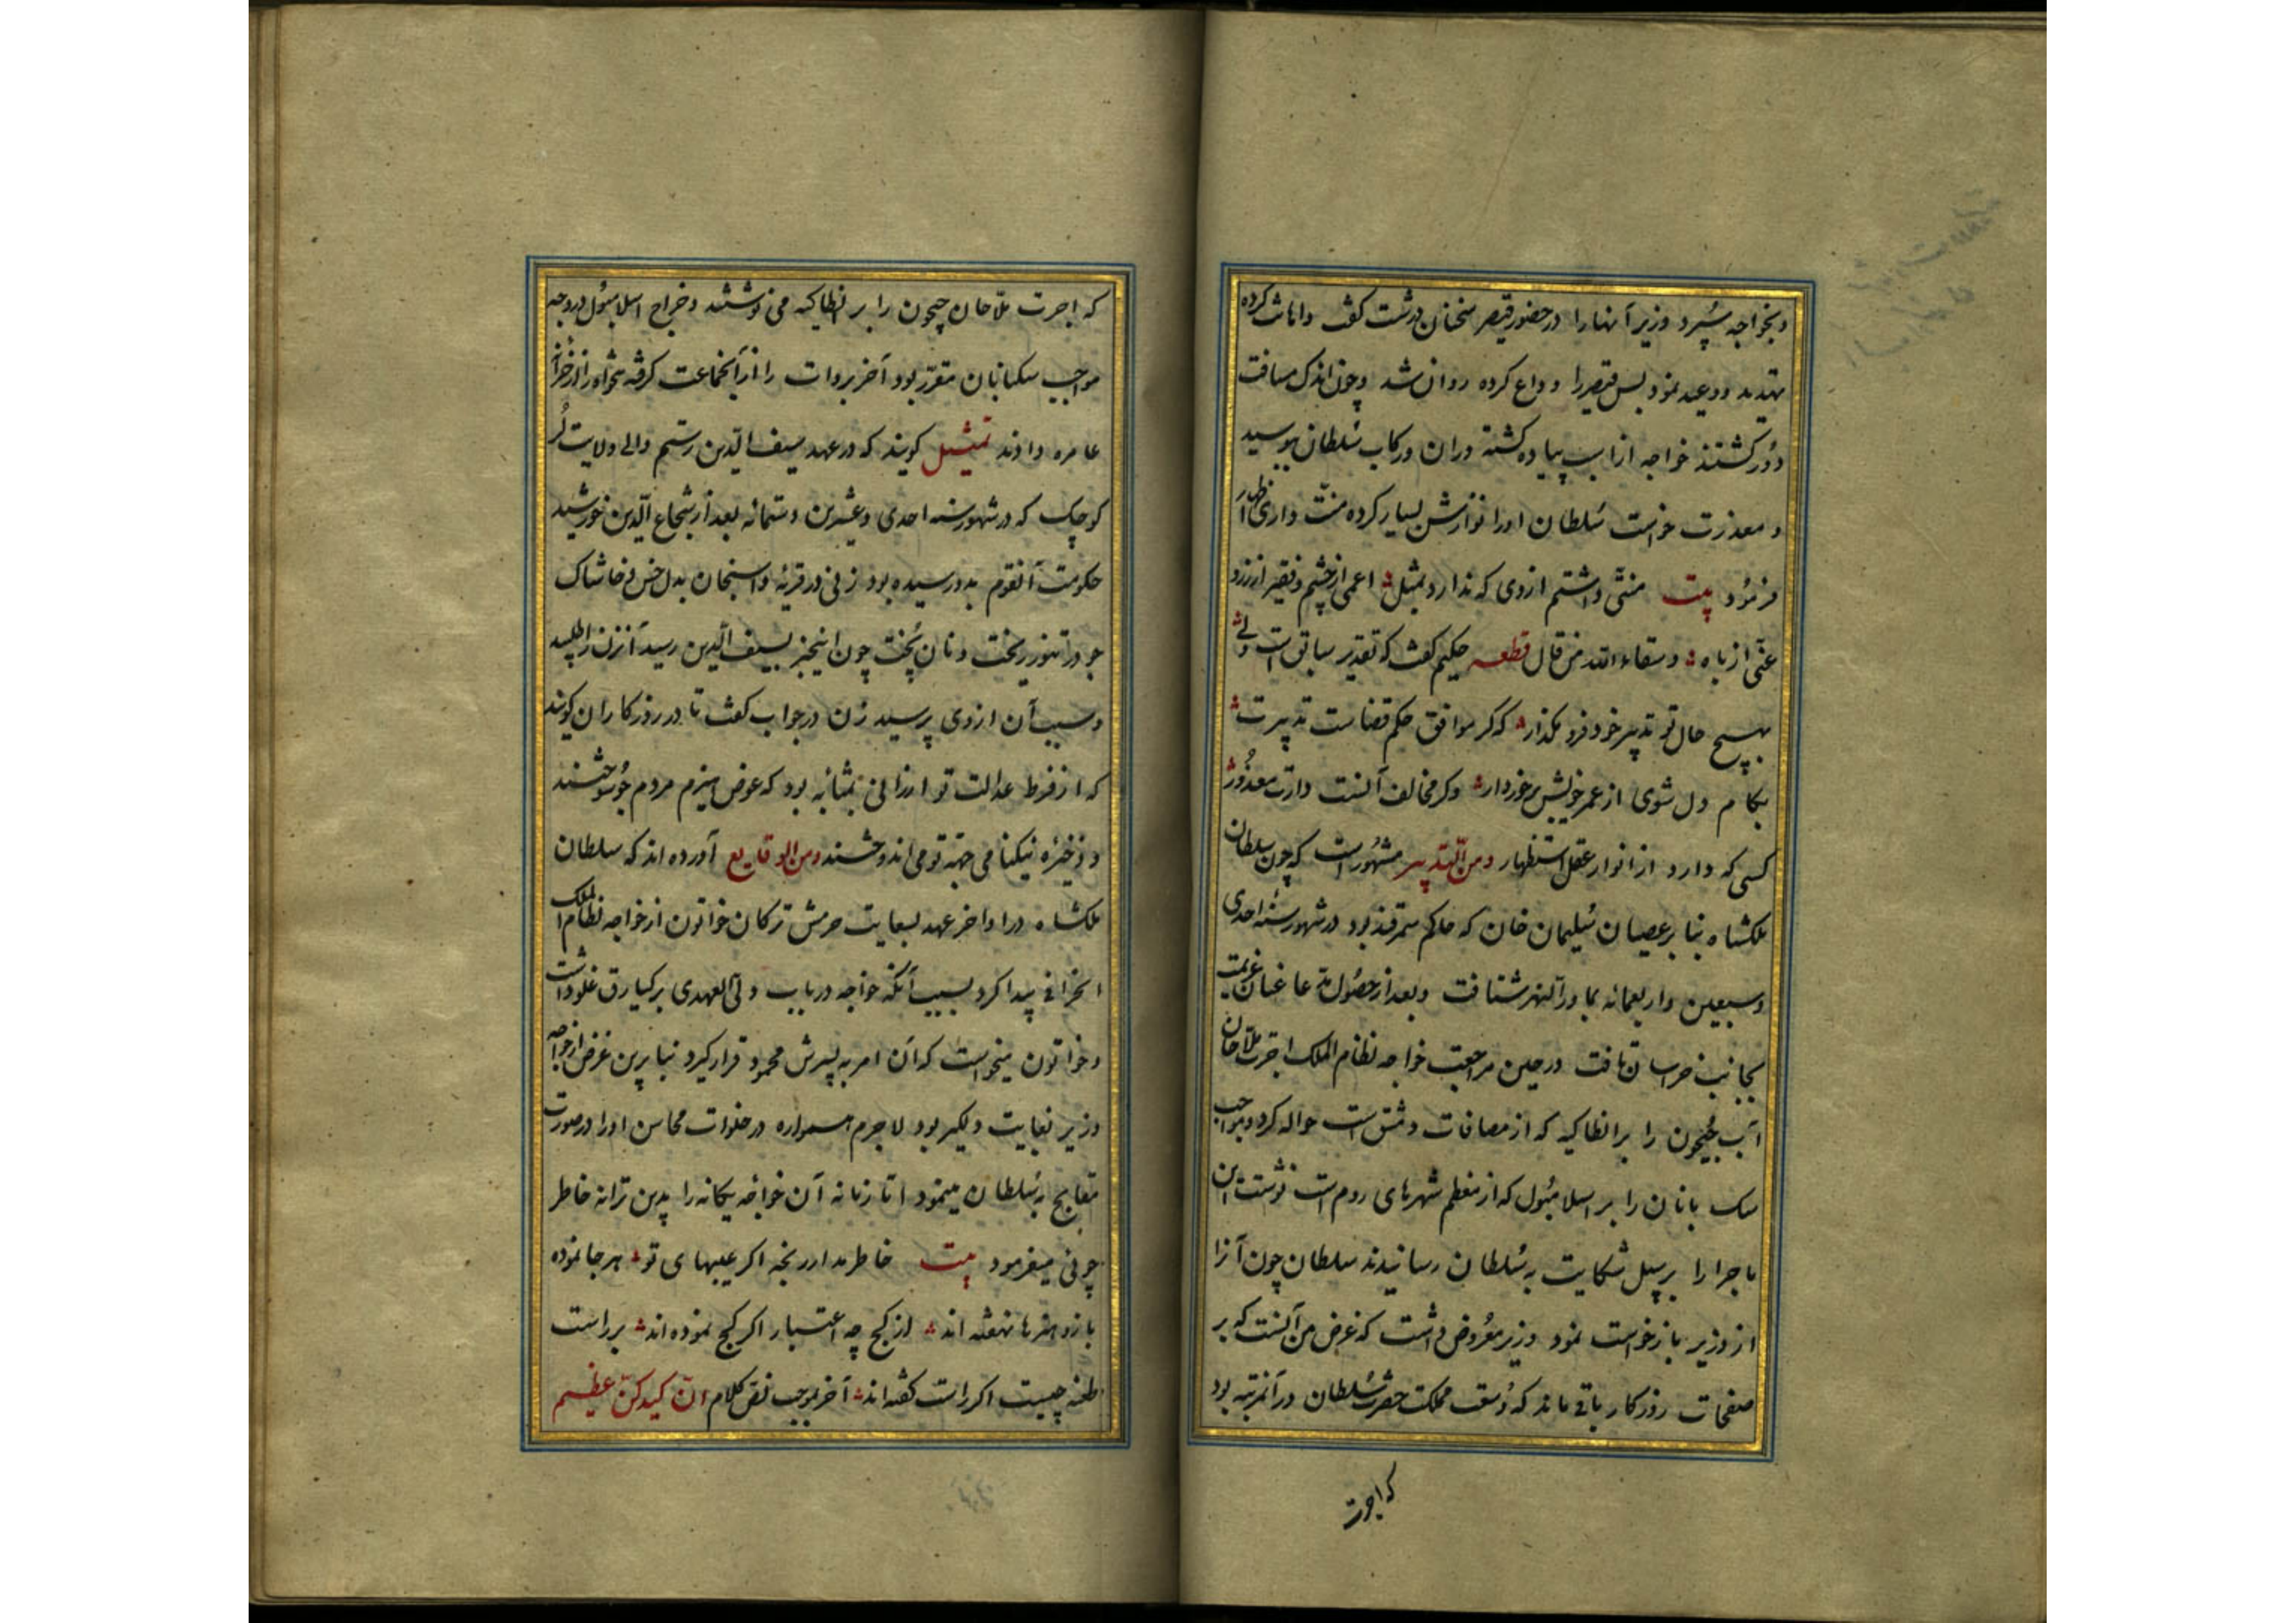 وبخواجه سپرد وزیر آنها را در حضور قیصر سخنان درشت گفت واهانت کرده
تهدید ووعید نمود پس قیصر را وداع کرده روان شد وچون اندک مسافت
دور گشتند خواجه از اسب پیاده گشته وران ورکاب سلطان ببوسید
ومعذرت خواست سلطان اورا نوازش بسیار کرده منت داری اظهار
فرمود بیت منتی داشتم ازوی که ندارد بمثل اعمی از چشم وفقیر از زر و
عنی از باه وسقاه الله من قال قطعه حکیم گفت که تقدیر سابق است ولی
بهیچ حال تو تدبیر خود فرو مگذار که گر موافق حکم قضاست تدبیرت
بکام دل شوی از عمر خویش برخوردار وگر مخالف آنست دارت معذور
کسی که دارد از انوار عقل استظهار ومن التدبیر مشهور است که چون سلطان
ملکشاه بنا بر عصیان سلیمان خان که حاکم سمرقند بود در شهور سنه احدی
وسبعین واربعمائه بماورآلنهر شتافت وبعد از حصول مدعا عنان عزیمت
بجانب خراسان تافت در حین مراجعت خواجه نظام الملک اجرت ملاحان
آب جیحون را بر انطاکیه که از مضافات دمشق است حواله کرد ومواجب
سک بانان را بر اسلامبول که از معظم شهرهای روم است نوشت این
ماجرا را بر سبیل شکایت به سلطان رسانیدند سلطان چون آنرا
از وزیر بازخواست نمود وزیر معروض داشت که غرض من آنست که بر
صفحات روزکار باقی ماند که وسعت مملکت حضرت سلطان در آنمرتبه بود
که اجرت
که اجرت ملاحان جیحون را بر انطاکیه می نوشتند وخراج اسلامبول در وجه
مواجب سکبانان مقرر بود آخر بروات را از آنجماعت گرفته
عامره دادند تمثیل گویند که در عهد سیف الدین رستم والی ولایت لر
کوچک که در شهور سنه احدی وعشرین وستمائه بعد از شجاع الدین خورشید
حکومت آنقوم بدو رسیده بود زنی در قریه واسنجان بدل خس وخاشاک
جو در تنور ریخت ونان پخت چون اینخبر بسیف الدین رسید آنزن را طلبید
وسبب آن ازوی پرسید زن در جواب گفت تا در روزکاران گویند
که از فرط عدالت تو ارزانی بمثابه بود که عوض هیزم مردم جو سوختند
وذخیره نیکنامی جهة تو می اندوختند ومن الوقایع آورده اند که سلطان
ملکشاه در اواخر عهد بسعایت حرمش ترکان خاتون از خواجه نظام الملک
انحرافی پیدا کرد بسبب آنکه خواجه در باب ولی العهدی برکیارق غلو داشت
وخاتون میخواست که آن امر به پسرش محمود قرار گیرد بنا برین غرض از خواجه
وزیر بغایت دلگیر بود لاجرم همواره در خلوات محاسن اورا در صورت
مقابح به سلطان مینمود اما زمانه آن خواجه یگانه را بدین ترانه خاطر
جوئی میفرمود بیت خاطر مدار رنجه اگر عیبهای تو هر جا نموده
باز وهنرها نهفته اند از کج چه اعتبار اگر کج نموده اند بر راست
طعنه چیست اگر راست گفته اند آخر بموجب نص کلام ان کیدکن عظیم